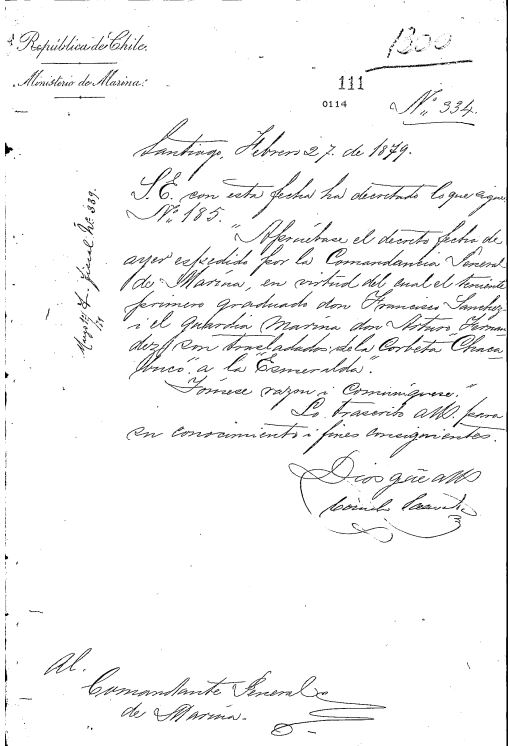 República de Chile.
Ministerio de Marina.
1300
111
0114
N.º 334.
Santiago, Febrero 27. de 1879.
S. E. con esta fecha ha decretado lo que sigue
N.º 185.
"Apruébase el decreto fecha de
ayer espedido por la Comandancia Jeneral
de Marina, en virtud del cual el teniente
primero graduado don Francisco Sanchez
i el guardia marina don Arturo Fernan
dez, son trasladados, de la Corbeta "Chaca
buco" a la "Esmeralda".
Tómese razon i comuníquese."
Lo trascribo a US. para
su conocimiento i fines consiguientes.
Dios gûe a US
Al.
Comandante Jeneral
de Marina.
fiscal N.º 339.